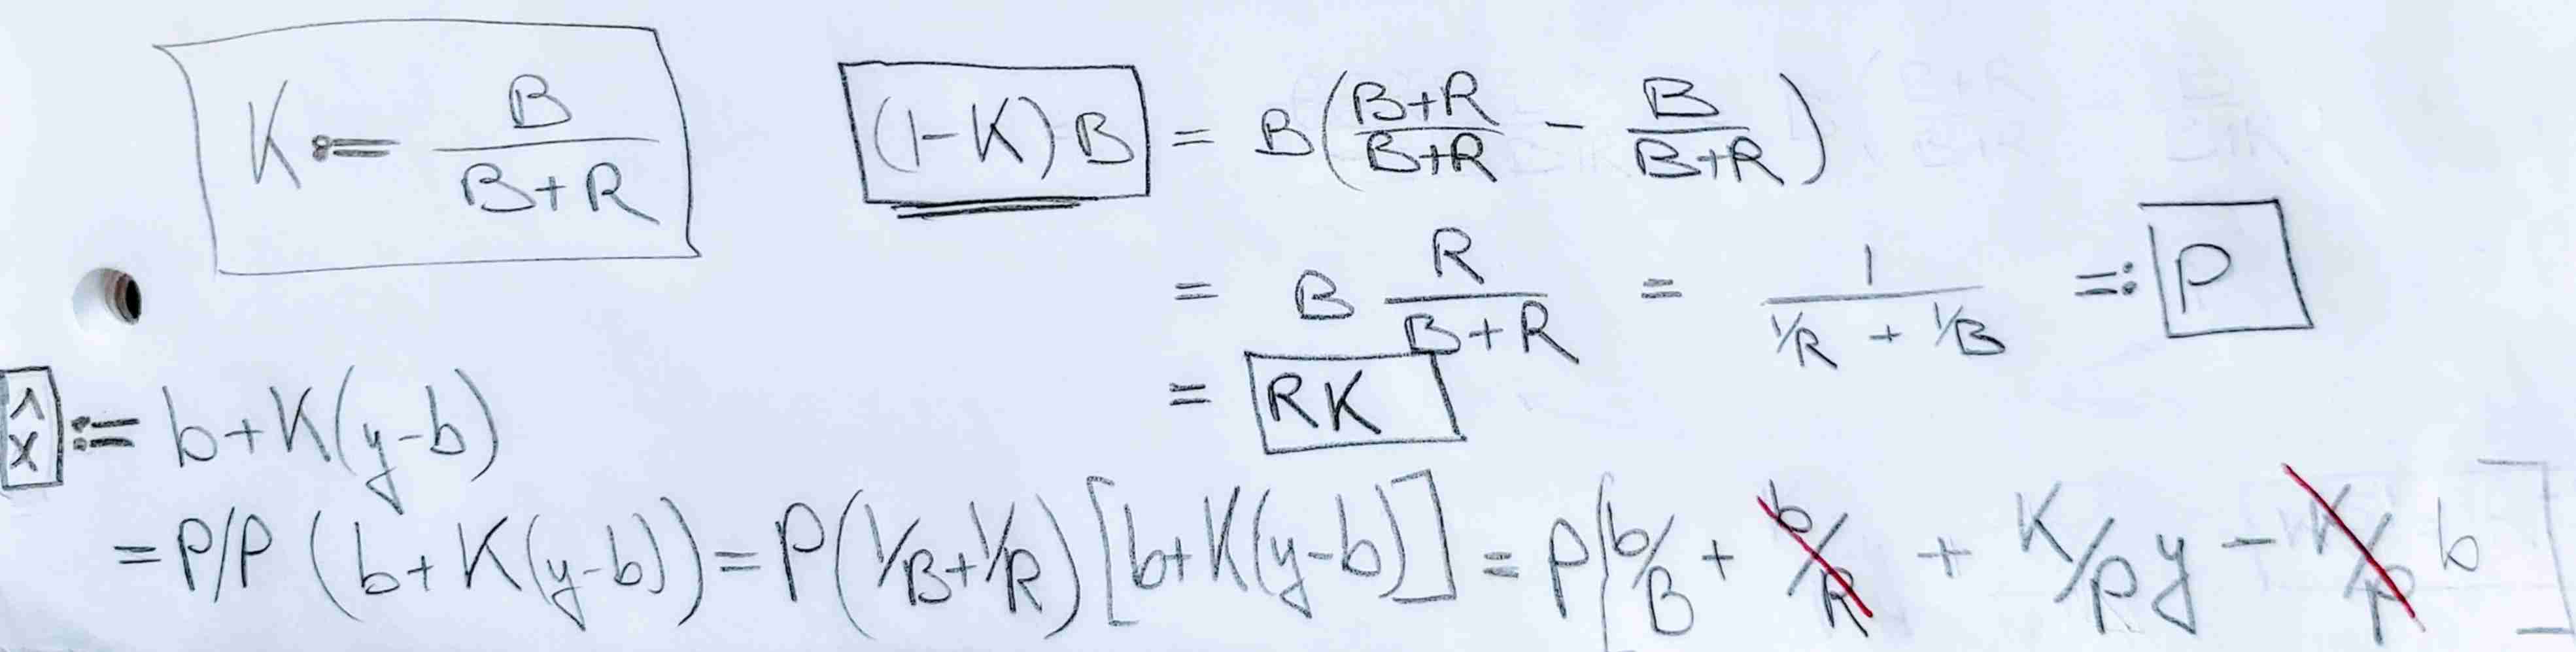 K := B/(B+R)    (1-K)B = B((B+R)/(B+R) - B/(B+R))
= B R/(B+R) = 1/(1/R + 1/B) =: P
= RK
x̂ := b+K(y-b)
= P/P (b+K(y-b)) = P(1/B+1/R)[b+K(y-b)] = P[b/B + b/R + K/P y - K/P b]